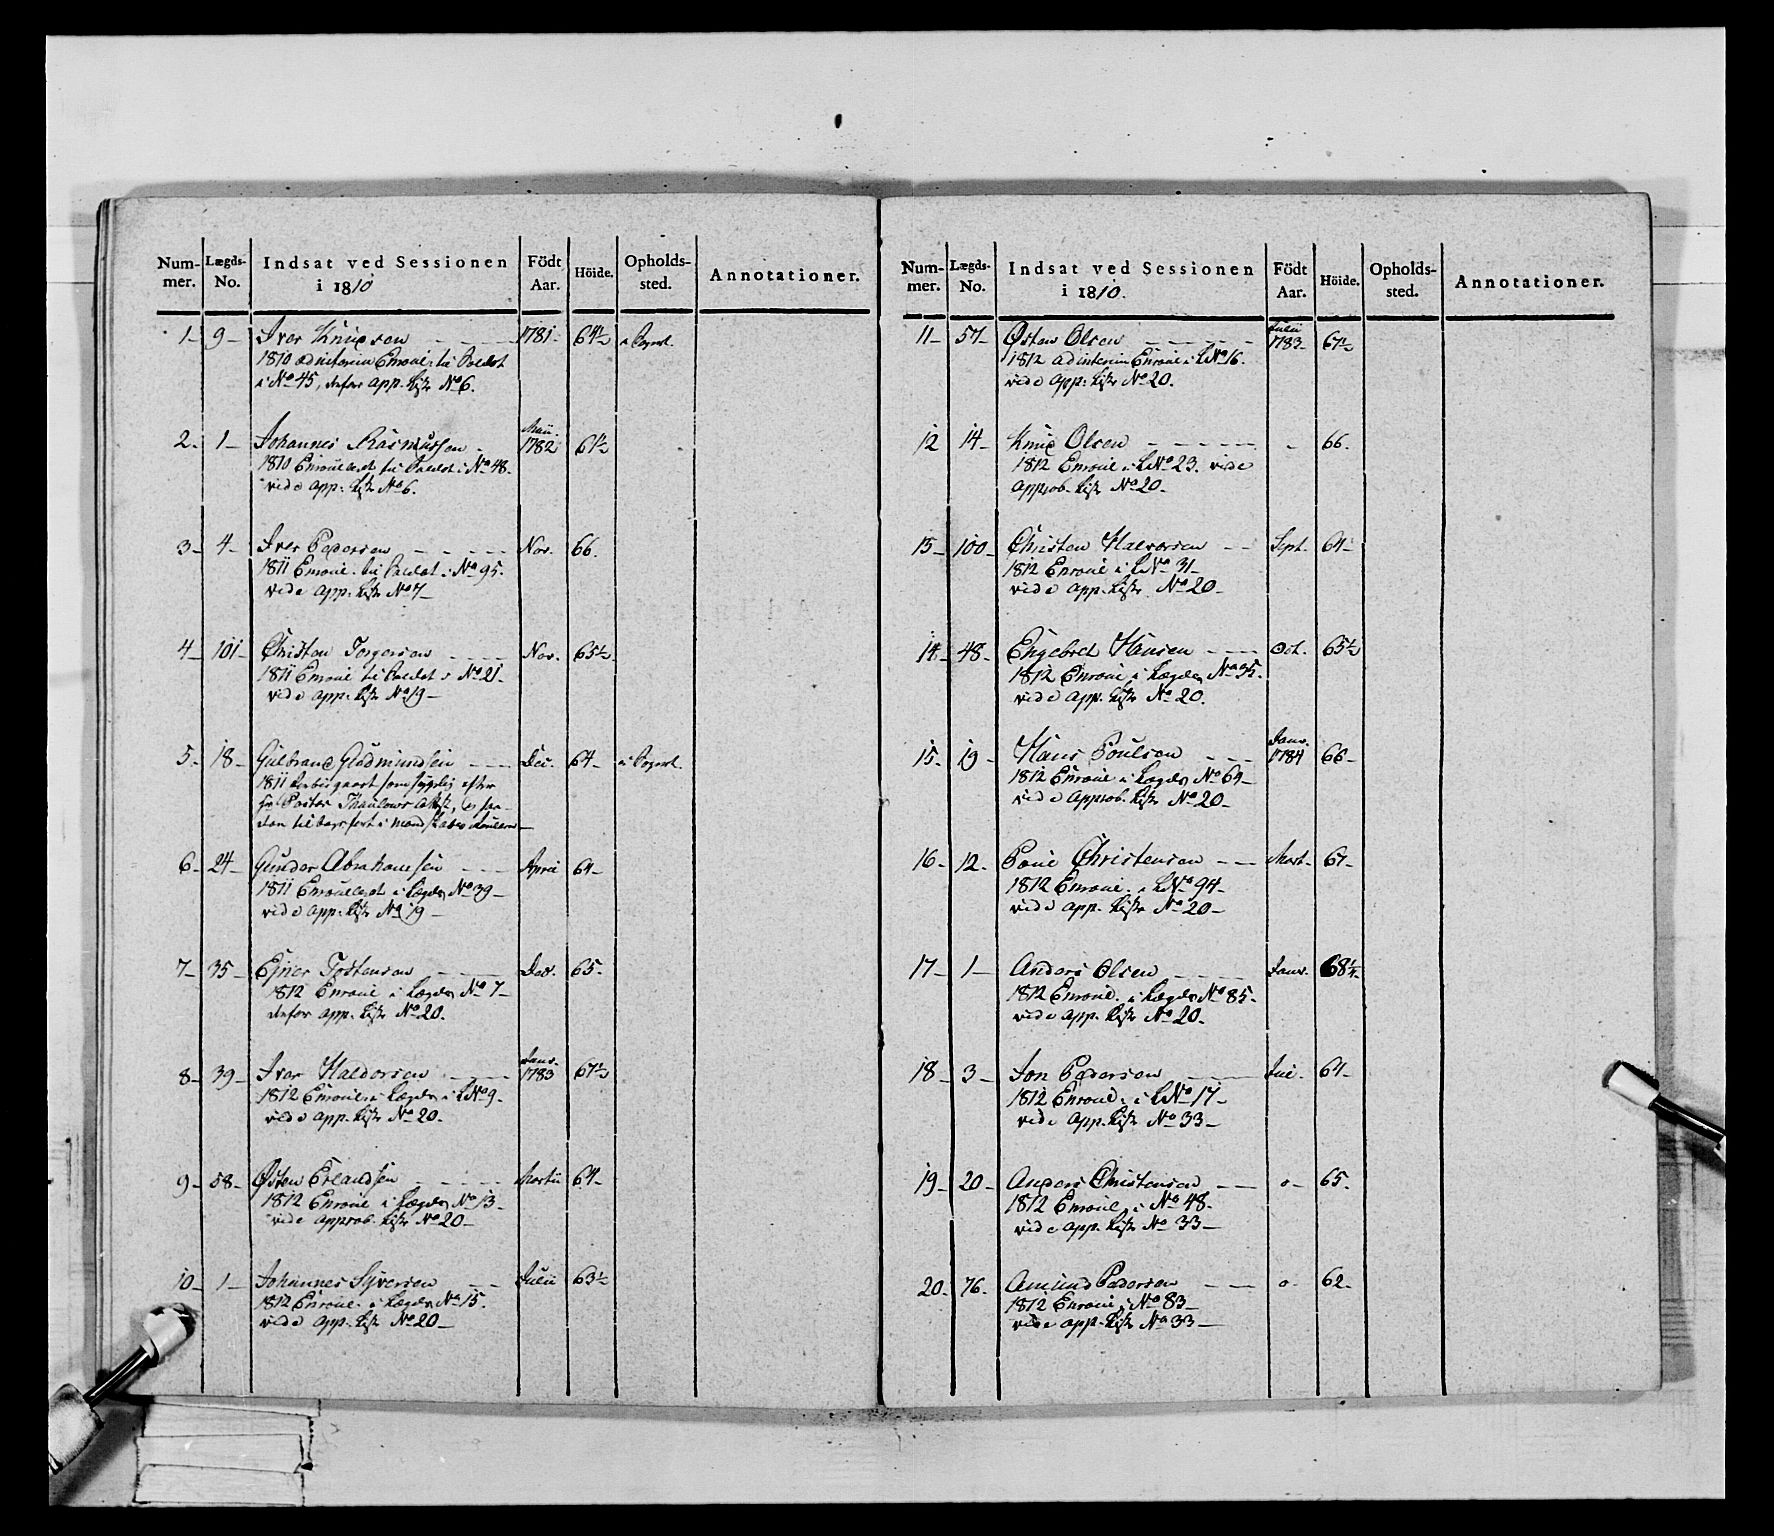 Num- Lægds- Indsat ved Sessionen Födt Höide. Opholds- Annotationer.
mer. No. i 1810 Aar. sted.
1- 9- Iver Knudsen 1781- 64½
1810 ad interim Enroul. til
i No 45, derfor app. Liste No 6.
2- 1- Johannes Rasmussen Maii 1782 61½
1810 Enroulleret til i No 48.
vide app: Liste No 6.
3- 4- Iver Pedersen Nov. 66.
1811 Enroul. til i No 95.
vide app: Liste No 7-
4- 101- Christen Torgersen Nov. 65½
1811 Enroul til No 21-
vide app: Liste No 19-
5- 18- Gulbrand Gudmundsen Dec. 64-
1811 som sygelig efter
Hr Pastor Thaulows Attest,
tilbageført i Mandskabs Roullerne
6- 24- Gunder Abrahamsen April 64-
1811 Enroulleret i Lægds No 39-
vide app. Liste No 19-
7- 35- Ejner Tostensen Dec. 65-
1812 Enroul i Lægds No 7-
derfor app. Liste No 20.
8- 39- Iver Haldorsen Janv. 1783 67½
1812 Enroul. i LNo 9-
vide app. Liste No 20.
9- 58- Østen Erlandsen Martii 64-
1812 Enroul i Lægds No 13-
vide approb. Liste No 20-
10- 1- Johannes Syversen Julii 63½
1812 Enroul. i Lægds No 15.
vide app. Liste No 20-
Num- Lægds- Indsat ved Sessionen Födt Höide. Opholds- Annotationer.
mer. No. i 1810. Aar. sted.
11- 57- Østen Olsen Julii 1783- 67½
1812 ad interim Enroul. i LNo 16.
vide app: Liste No 20.
12 14- Knud Olsen - 66.
1812 Enroul i LNo 23. vide
Approb. Liste No 20-
13- 100- Christen Halvorsen Sept. 64-
1812 Enroul i LNo 31-
vide app. Liste No 20-
14- 48- Engebret Hansen Oct. 65½
1812 Enroul i Lægds No 35.
vide app. Liste No 20.
15- 19- Hans Poulsen Janv. 1784 66-
1812 Enroul i Lægds No 64-
vide approb. Liste No 20-
16- 12- Poul Christensen Mart. 67-
1812 Enroul. i LNo 94-
vide app. Liste No 20-
17- 1- Anders Olsen Janv. 68¼
1812 Enroul. i Lægds No 85-
vide app. Liste No 20.
18- 3- Jon Pedersen Jul- 64-
1812 Enroul. i LNo 17-
vide app. Liste No 33-
19- 20- Anders Christensen o- 65.
1812 Enroul. i No 48.
vide app. Liste No 33-
20- 76- Amund Pedersen o- 62-
1812 Enroul i No 83-
vide app. Liste No 33-